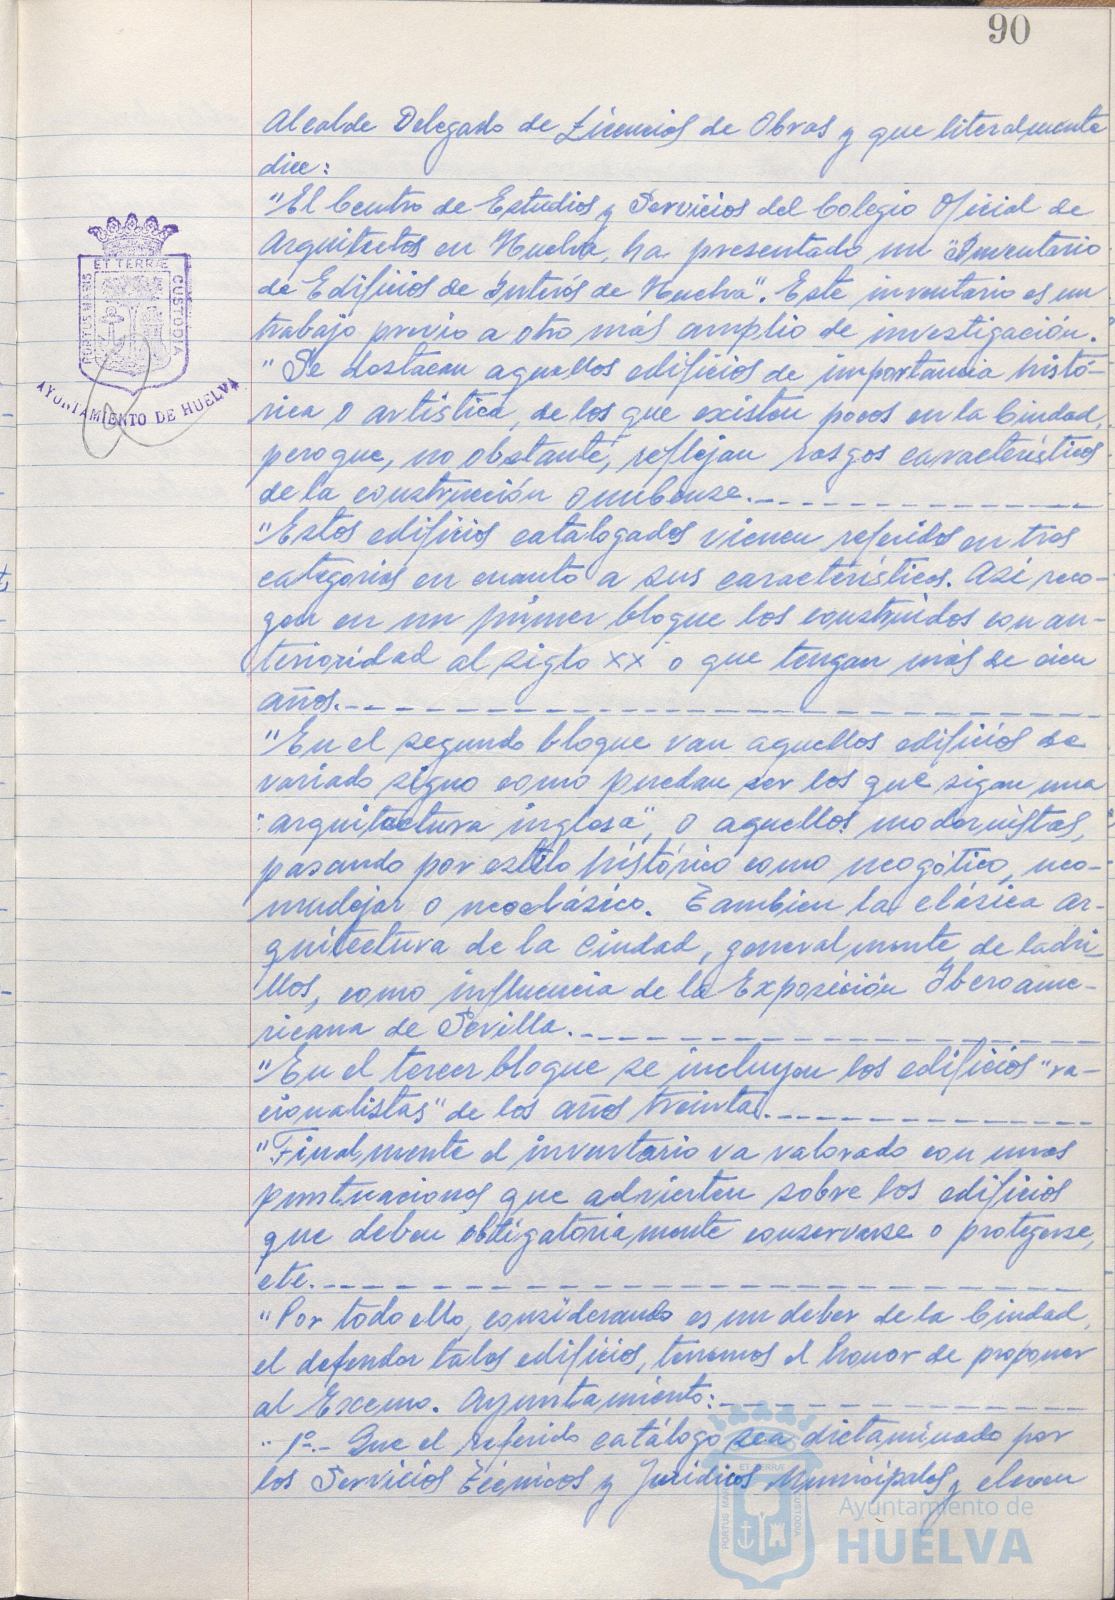 90
Alcalde Delegado de Licencias de Obras y que literalmente
dice:
"El Centro de Estudios y Servicios del Colegio Oficial de
Arquitectos en Huelva, ha presentado un "Inventario
de Edificios de Interés de Huelva". Este inventario es un
trabajo previo a otro más amplio de investigación.
"Se destacan aquellos edificios de importancia histó-
rica o artística, de los que existen pocos en la Ciudad,
pero que, no obstante, reflejan rasgos característicos
de la construcción onubense.
"Estos edificios catalogados vienen referidos en tres
categorías en cuanto a sus características. Así reco-
gen en un primer bloque los construidos con an-
terioridad al siglo XX o que tengan más de cien
años.
"En el segundo bloque van aquellos edificios de
variado signo como puedan ser los que sigan una
"arquitectura inglesa", o aquellos modernistas,
pasando por estilo histórico como neogótico, neo-
mudejar o neoclásico. Tambien la clásica ar-
quitectura de la Ciudad, generalmente de ladri-
llos, como influencia de la Exposición Iberoame-
ricana de Sevilla.
"En el tercer bloque se incluyen los edificios "ra-
cionalistas" de los años treinta.
"Finalmente el inventario va valorado con unas
puntuaciones que advierten sobre los edificios
que deben obligatoriamente conservarse o protegerse,
etc.
"Por todo ello, considerando es un deber de la Ciudad,
el defender tales edificios, tenemos el honor de proponer
al Excmo. Ayuntamiento:
"1º.- Que el referido catálogo sea dictaminado por
los Servicios Técnicos y Jurídicos Municipales y eleven
ET TERRÆ
PORTUS MARIS
CUSTODIA
AYUNTAMIENTO DE HUELVA
ET TERRÆ
PORTUS MA
CUSTODIA
Ayuntamiento de
HUELVA